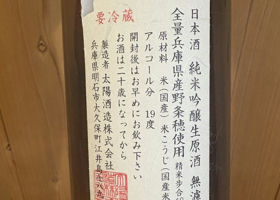 要冷蔵
日本酒 純米吟醸生原酒 無濾
全量兵庫県産野条穂使用 精米歩合
原材料 米(国産)米こうじ(国産米
アルコール分 19度
開封後はお早めにお飲み下さい
お酒は二十歳になってから
製造者 太陽酒造株式会社
兵庫県明石市大久保町江井島